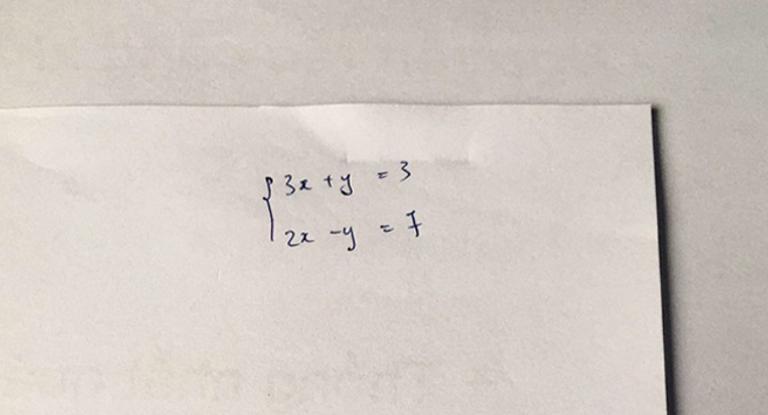 { 3x + y = 3
2x - y = 7